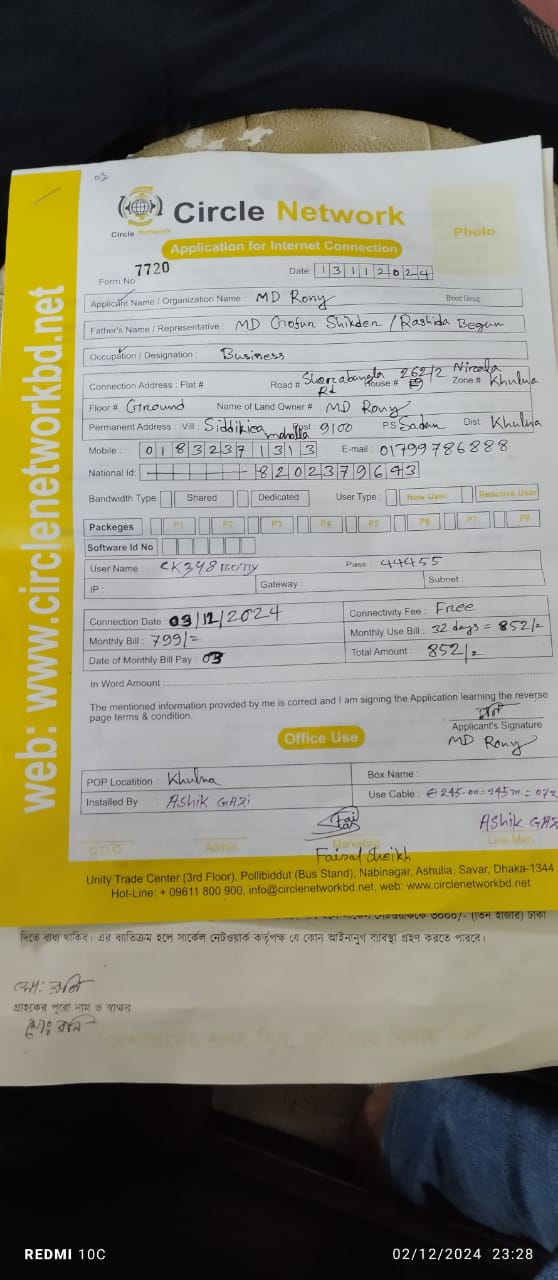 03
Circle Network
Circle Network
Application for Internet Connection
Photo
Form No 7720
Date: 13112024
Applicant Name / Organization Name : MD Rony Blood Group
Father's Name / Representative : MD Gofur Shikder / Rashida Begum
Occupation / Designation : Business
Connection Address : Flat # Road # Sherabangla Rd House # 262/2 Nirala Zone # Khulna
Floor # Ground Name of Land Owner # MD Rony
Permanent Address : Vill : Siddikia mohalla Post 9100 P.S Sadar Dist: Khulna
Mobile : 01832371313 E-mail : 01799786888
National Id: 8202379643
Bandwidth Type Shared Dedicated User Type : New User Reactive User
Packeges P1 P2 P3 P4 P5 P6 P7 P8
Software Id No
User Name : CK348rony Pass : 44455
IP : Gateway : Subnet :
Connection Date : 03/12/2024 Connectivity Fee : Free
Monthly Bill : 799/= Monthly Use Bill : 32 days = 852/=
Date of Monthly Bill Pay : 03 Total Amount : 852/=
In Word Amount :
The mentioned information provided by me is correct and I am signing the Application learning the reverse
page terms & condition.
Applicant's Signature
MD Rony
Office Use
POP Locatition : Khulna Box Name :
Installed By : Ashik GAZi Use Cable : 245-00=245m =
Ashik GAZ
C O O Admin Marketing Line Man
Faisal Sheikh
Unity Trade Center (3rd Floor), Pollibiddut (Bus Stand), Nabinagar, Ashulia, Savar, Dhaka-1344
Hot-Line: + 09611 800 900, info@circlenetworkbd.net, web: www.circlenetworkbd.net
web: www.circlenetworkbd.net
৩০০০/- (তিন হাজার) টাকা
দিতে বাধ্য থাকিব। এর ব্যতিক্রম হলে সার্কেল নেটওয়ার্ক কর্তৃপক্ষ যে কোন আইনানুগ ব্যবস্থা গ্রহণ করতে পারবে।
মো: রনি
গ্রাহকের পুরো নাম ও স্বাক্ষর
মোঃ রনি
REDMI 10C
02/12/2024 23:28